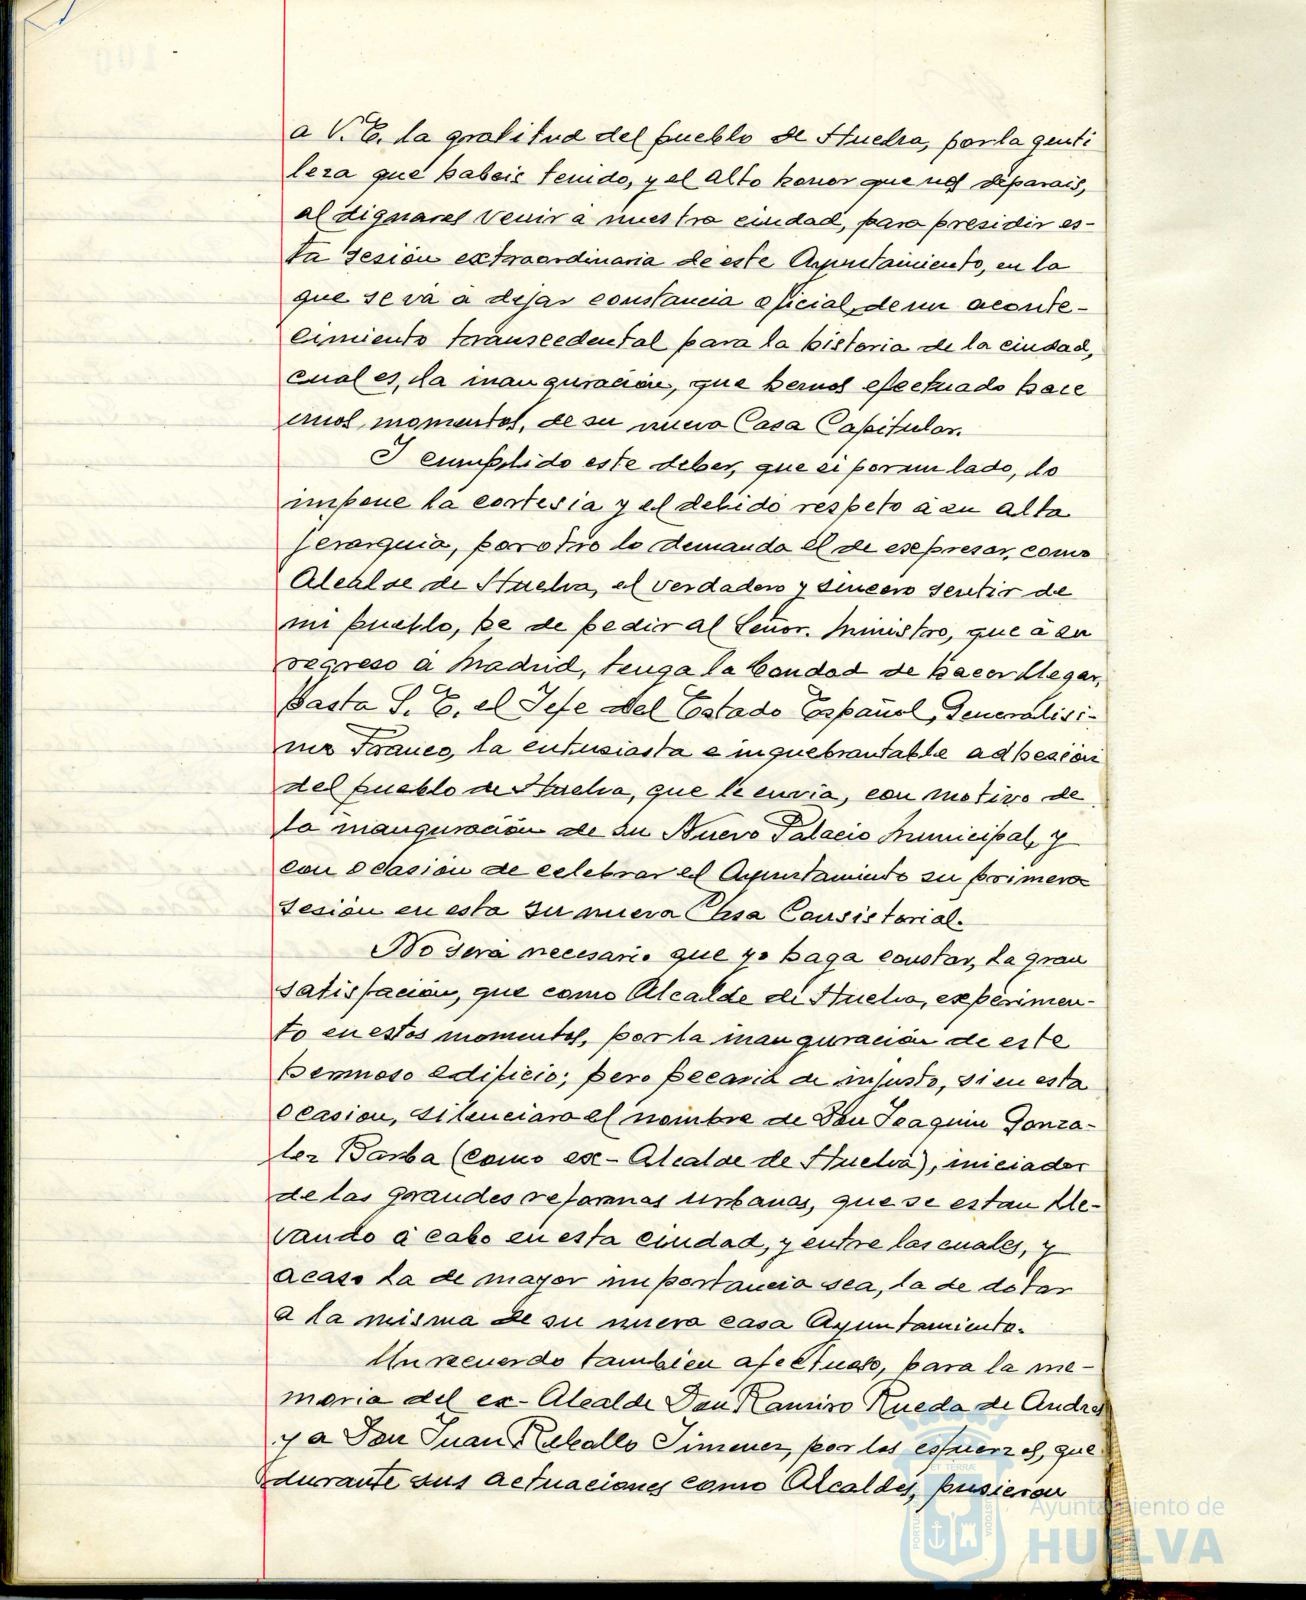 a V. E. la gratitud del pueblo de Huelva, por la genti
leza que habeis tenido, y el alto honor que nos deparais,
al dignaros venir á nuestra ciudad, para presidir es-
ta sesión extraordinaria de este Ayuntamiento, en la
que se vá a dejar constancia oficial, de un aconte-
cimiento transcedental para la historia de la ciudad,
cual es, la inauguración, que hemos efectuado hace
unos momentos, de su nueva Casa Capitular.
Y cumplido este deber, que si por un lado, lo
impone la cortesia y el debido respeto á su alta
jerarquia, por otro lo demanda el de esepresar, como
Alcalde de Huelva, el verdadero y sincero sentir de
mi pueblo, he de pedir al Señor. Ministro, que á su
regreso á Madrid, tenga la bondad de hacer llegar,
hasta S. E. el Jefe del Estado Español, Generalisi-
mo Franco, la entusiasta e inquebrantable adhesión
del pueblo de Huelva, que le envia, con motivo de
la inauguración de su Nuevo Palacio Municipal, y
con ocasión de celebrar el Ayuntamiento su primera
sesión en esta su nueva Casa Consistorial.
No será necesario que yo haga constar, la gran
satisfación, que como Alcalde de Huelva, experimen-
to en estos momentos, por la inauguración de este
hermoso edificio; pero pecaria de injusto, si en esta
ocasion, silenciara el nombre de Don Joaquin Gonza-
lez Barba (como ex-Alcalde de Huelva), iniciador
de las grandes reformas urbanas, que se estan lle-
vando á cabo en esta ciudad, y entre las cuales, y
acaso la de mayor importancia sea, la de dotar
a la misma de su nueva casa Ayuntamiento.
Un recuerdo tambien afectuoso, para la me-
moria del ex-Alcalde Don Ramiro Rueda de Andres
y a Don Juan Rebollo Jimenez, por los esfuerzos, que
durante sus actuaciones como Alcaldes, pusieron
Ayuntamiento de
HUELVA